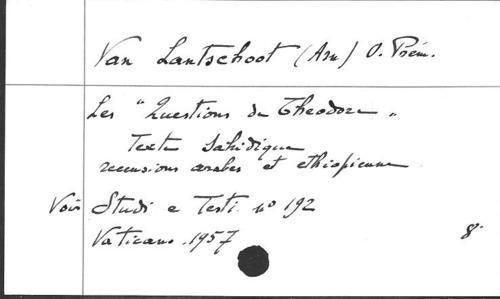 Van Lantschoot (Arn) O. Prém.
Les "Questions de Theodore"
Texte Sahidique
recensions arabes et ethiopienne
Voir Studi e Testi n° 192
Vaticano. 1957 8°